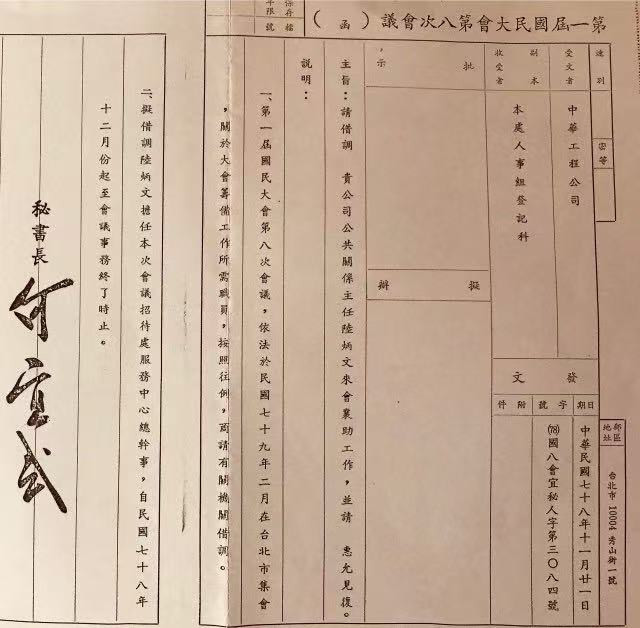 第一屆國民大會第八次會議（函）
保存年限
檔號
速別
密等
受文者
中華工程公司
副本收受者
本處人事組登記科
郵區地址
台北市10004秀山街一號
發文
日期
中華民國七十八年十一月廿一日
字號
(78)國八會宜秘人字第三〇八四號
附件
批示
擬辦
主旨：請借調　貴公司公共關係主任陸炳文來會襄助工作，並請　惠允見復。
說明：
一、第一屆國民大會第八次會議，依法於民國七十九年二月在台北市集會
，關於大會籌備工作所需職員，按照往例，商請有關機關借調。
二、擬借調陸炳文擔任本次會議招待處服務中心總幹事，自民國七十八年
十二月份起至會議事務終了時止。
秘書長　何宜武